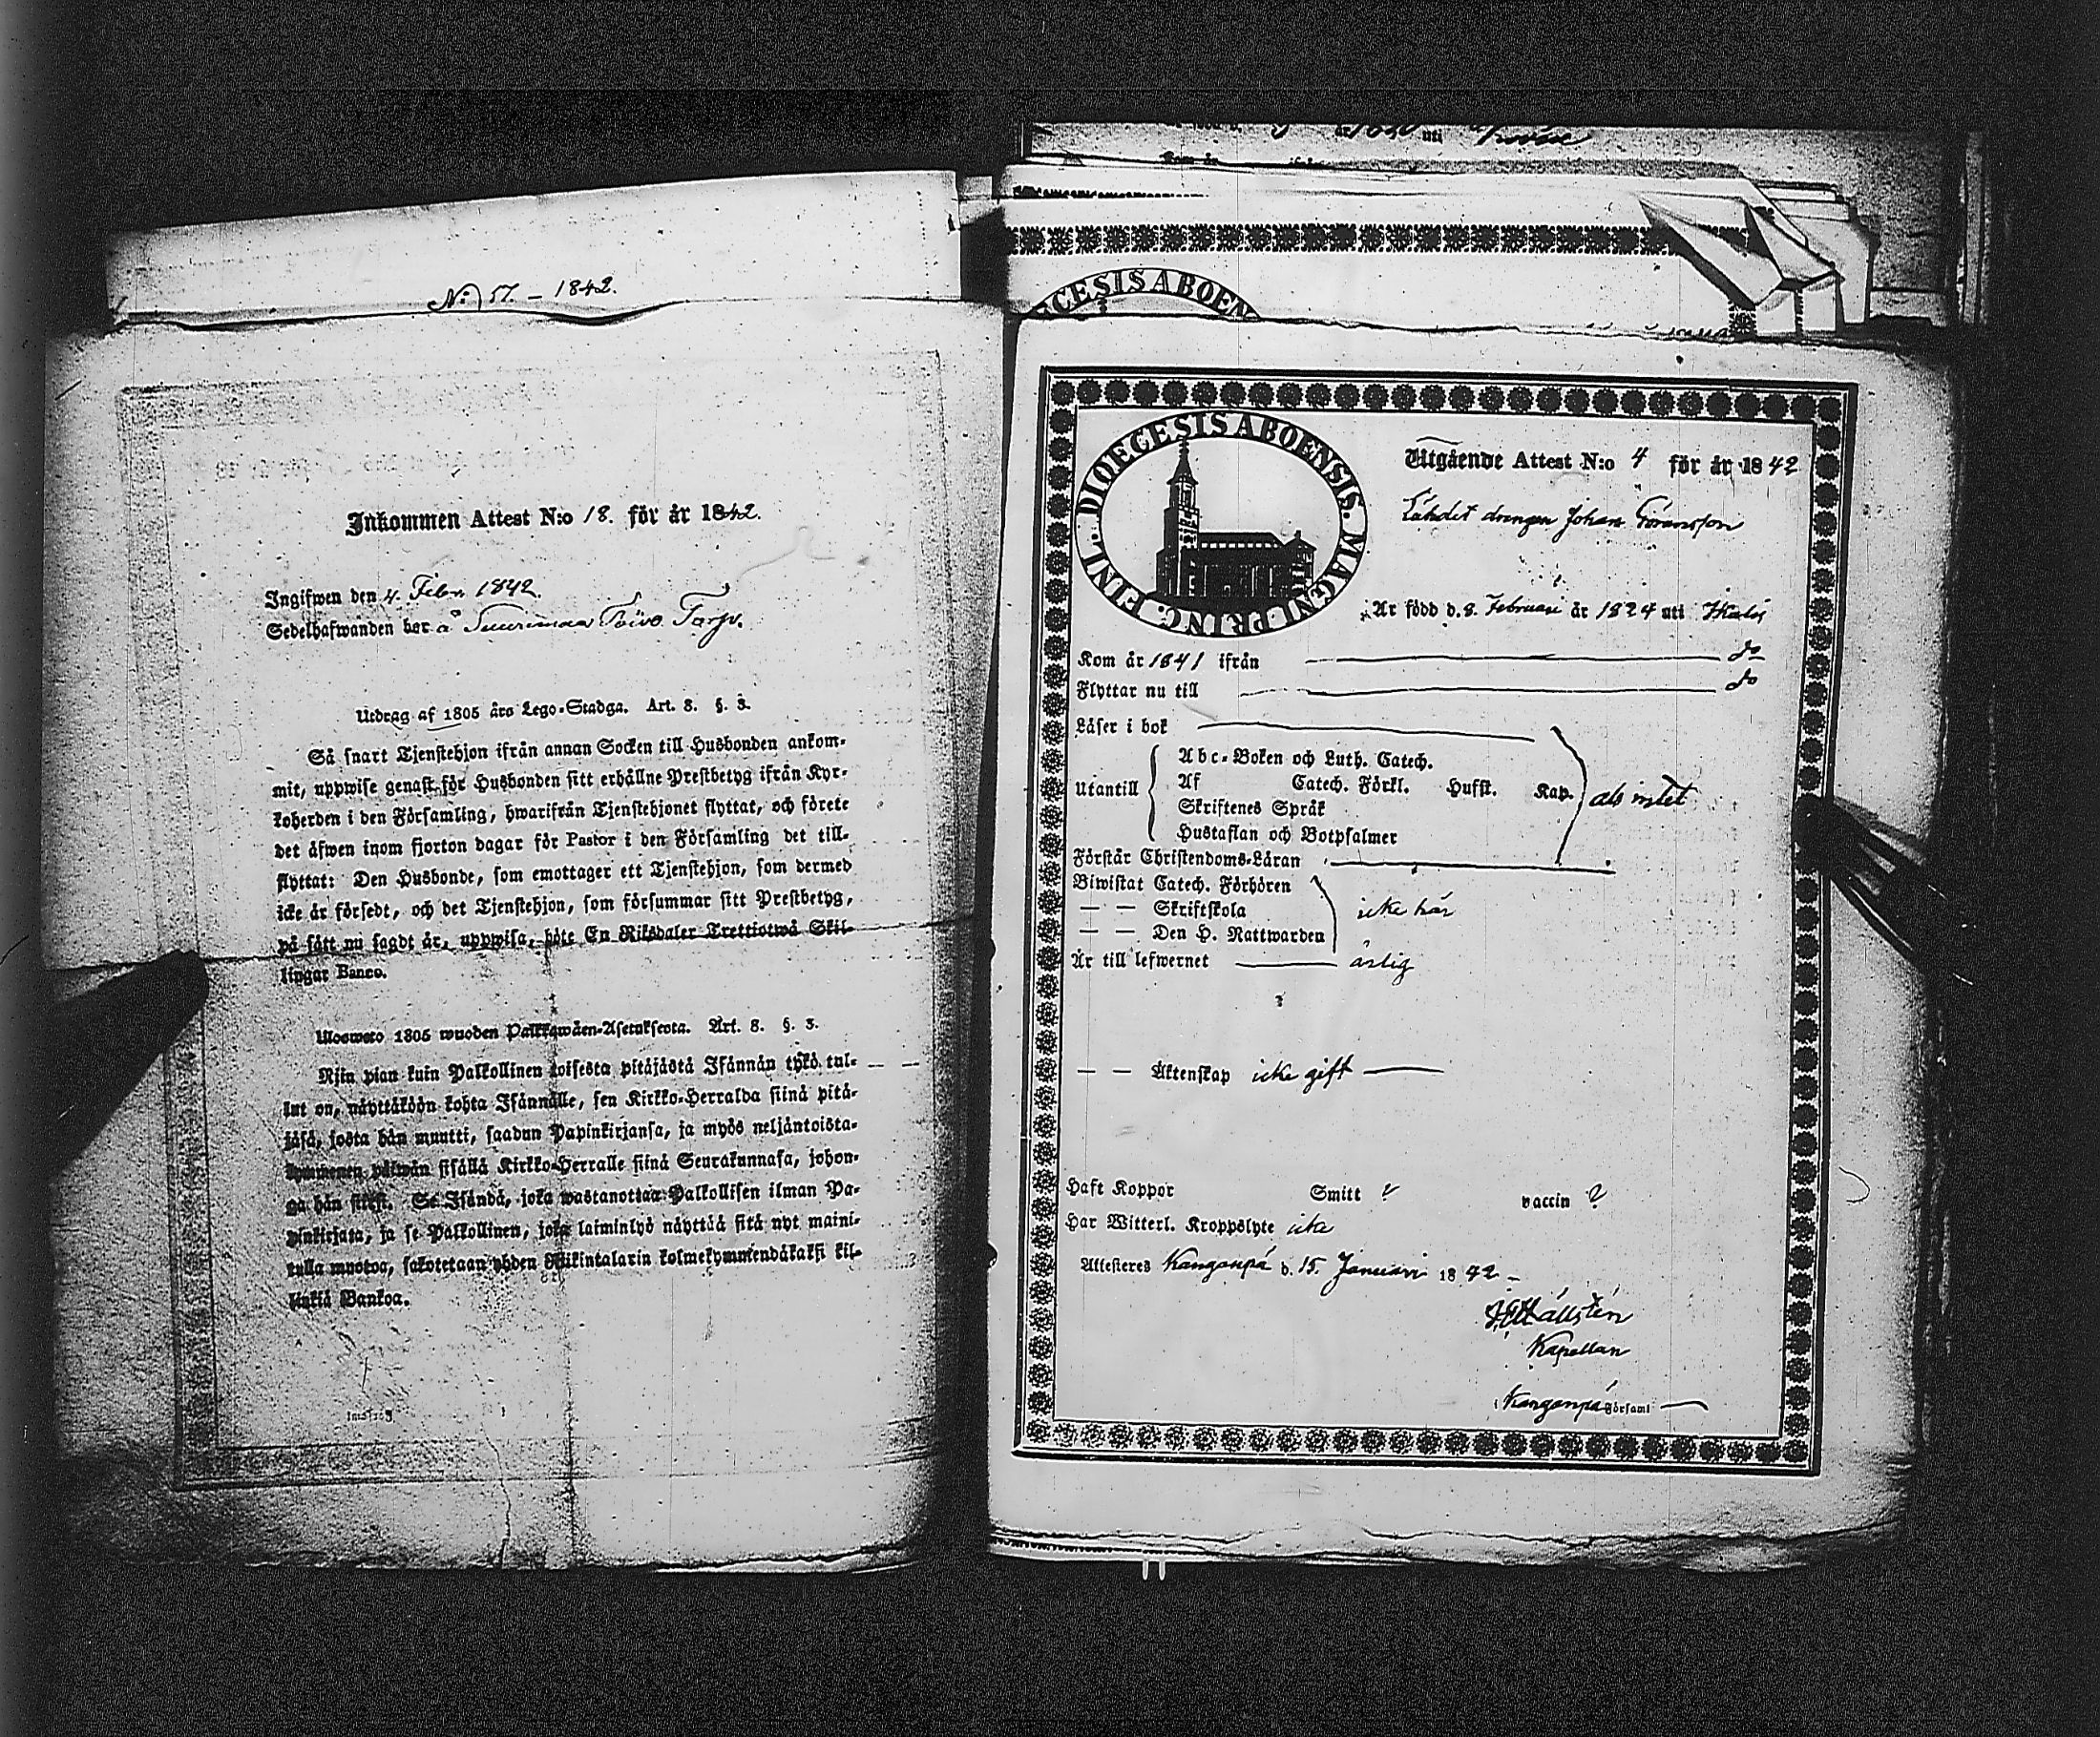 N:o 57. – 1842.
Inkommen Attest N:o 18. för år 1842.
Ingifwen den 4. Febr. 1842.
Sedelhafwanden bor å Torp.
Utdrag af 1805 års Lego-Stadga. Art. 8. §. 3.
Så snart Tjenstehjon ifrån annan Socken till Husbonden ankom-
mit, uppwise genast för Husbonden sitt erhållne Prestbetyg ifrån Kyr-
koherden i den Församling, hwarifrån Tjenstehjonet flyttat, och förete
det äfwen inom fjorton dagar för Pastor i den Församling det till-
flyttat: Den Husbonde, som emottager ett Tjenstehjon, som dermed
icke är försedt, och det Tjenstehjon, som försummar sitt Prestbetyg,
på sätt nu sagdt är, uppwisa, böte En Riksdaler Trettiotwå Skil-
lingar Banco.
Ulosweto 1805 wuoden Palkkawäen-Asetuksesta. Art. 8. §. 3.
Njin pian kuin Palkollinen toisesta pitäjästä Isännän tykö tul-
lut on, näyttäköön kohta Isännälle, sen Kirkko-Herralda siinä pitä-
jäsä, josta hän muutti, saadun Papinkirjansa, ja myös neljäntoista-
kymmenen päiwän sisällä Kirkko-Herralle siinä Seurakunnasa, johon-
ga hän siirsi. Se Isändä, joka wastanottaa Palkollisen ilman Pa-
pinkirjata, ja se Palkollinen, joka laiminlyö näyttää sitä nyt maini-
tulla muotoa, sakotetaan yhden Riikintalarin kolmekymmendäkaksi kil-
linkiä Bankoa.
uti
Kom år ifrån
ECESIS ABOEN
DIOECESIS ABOENSIS. MAGNI PRINC. FINL.
Utgående Attest N:o 4 för år 1842
drengen Johan Göransson
Är född d. 8. Februari år 1824 uti
Kom år 1841 ifrån do
Flyttar nu till do
Läser i bok
Abc-Boken och Luth. Catech.
Utantill Af Catech. Förkl. Hufst. Kap. als intet
Skriftenes Språk
Hustaflan och Botpsalmer
Förstår Christendoms-Läran
Biwistat Catech. Förhören
— — Skriftskola icke här
— — Den H. Nattwarden
Är till lefwernet ärlig
— — Äktenskap icke gift
Haft Koppor Smitt ? vaccin ?
Har Witterl. Kroppslyte icke
Attesteras Kangaspä d. 15. Januari 1842
Hällstén
Kapellan
i Kangaspä Församl